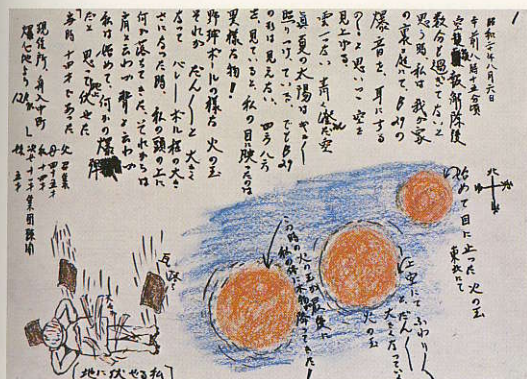 昭和二十年八月六日
午前八時十五分頃
空襲警報解除後
数分も過ぎたなと
思う時 私は我が家
の東庭にて、B29の
爆音を、耳にする
の?と思いつつ空を
見上げる。
雲一つない 青く澄だ空
真夏の太陽はギラ〱
照りつけていた、でもB29
の形は見えない。四方八方
を見ていると、私の目に映たのは
異様な物!
野球ボールの様な 火の玉
それが だん〱と 大きく
なって バレーボール程の大き
さになった時、私の頭の上に
何か落ちてきた、それからは
音と云わず
私は始めて、何かの爆弾
だと 思って 伏せた
当時 十四才であった
現住所、舟入中町
爆心地より
父 召集
母 四十五才
私 十四才
次女 十一才 集団疎開
妹 五才
北
始めて目に止った火の玉
東北にて
上空にて ふわり〱
と だん〱
大きくなって
火の玉
この時の火の玉が最後に
瓦 落つ
私
地に伏せる